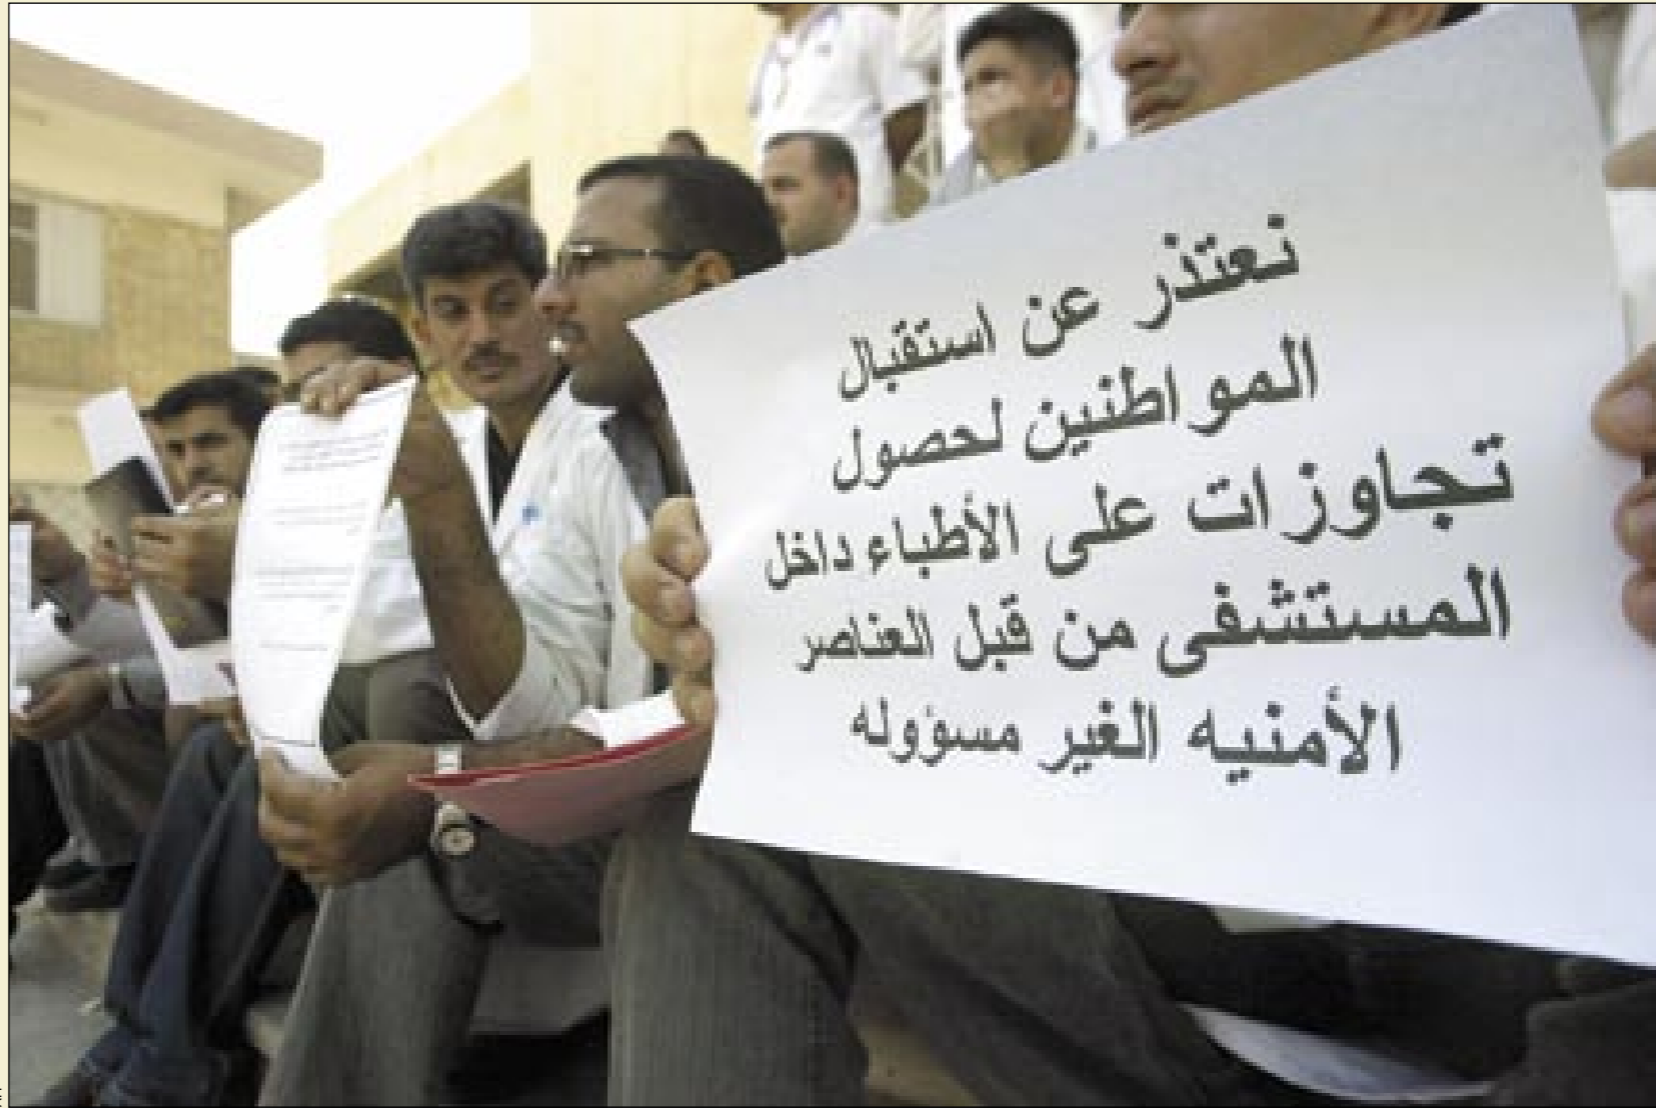 نعتذر عن استقبال
المواطنين لحصول
تجاوزات على الأطباء داخل
المستشفى من قبل العناصر
الأمنيه الغير مسؤوله